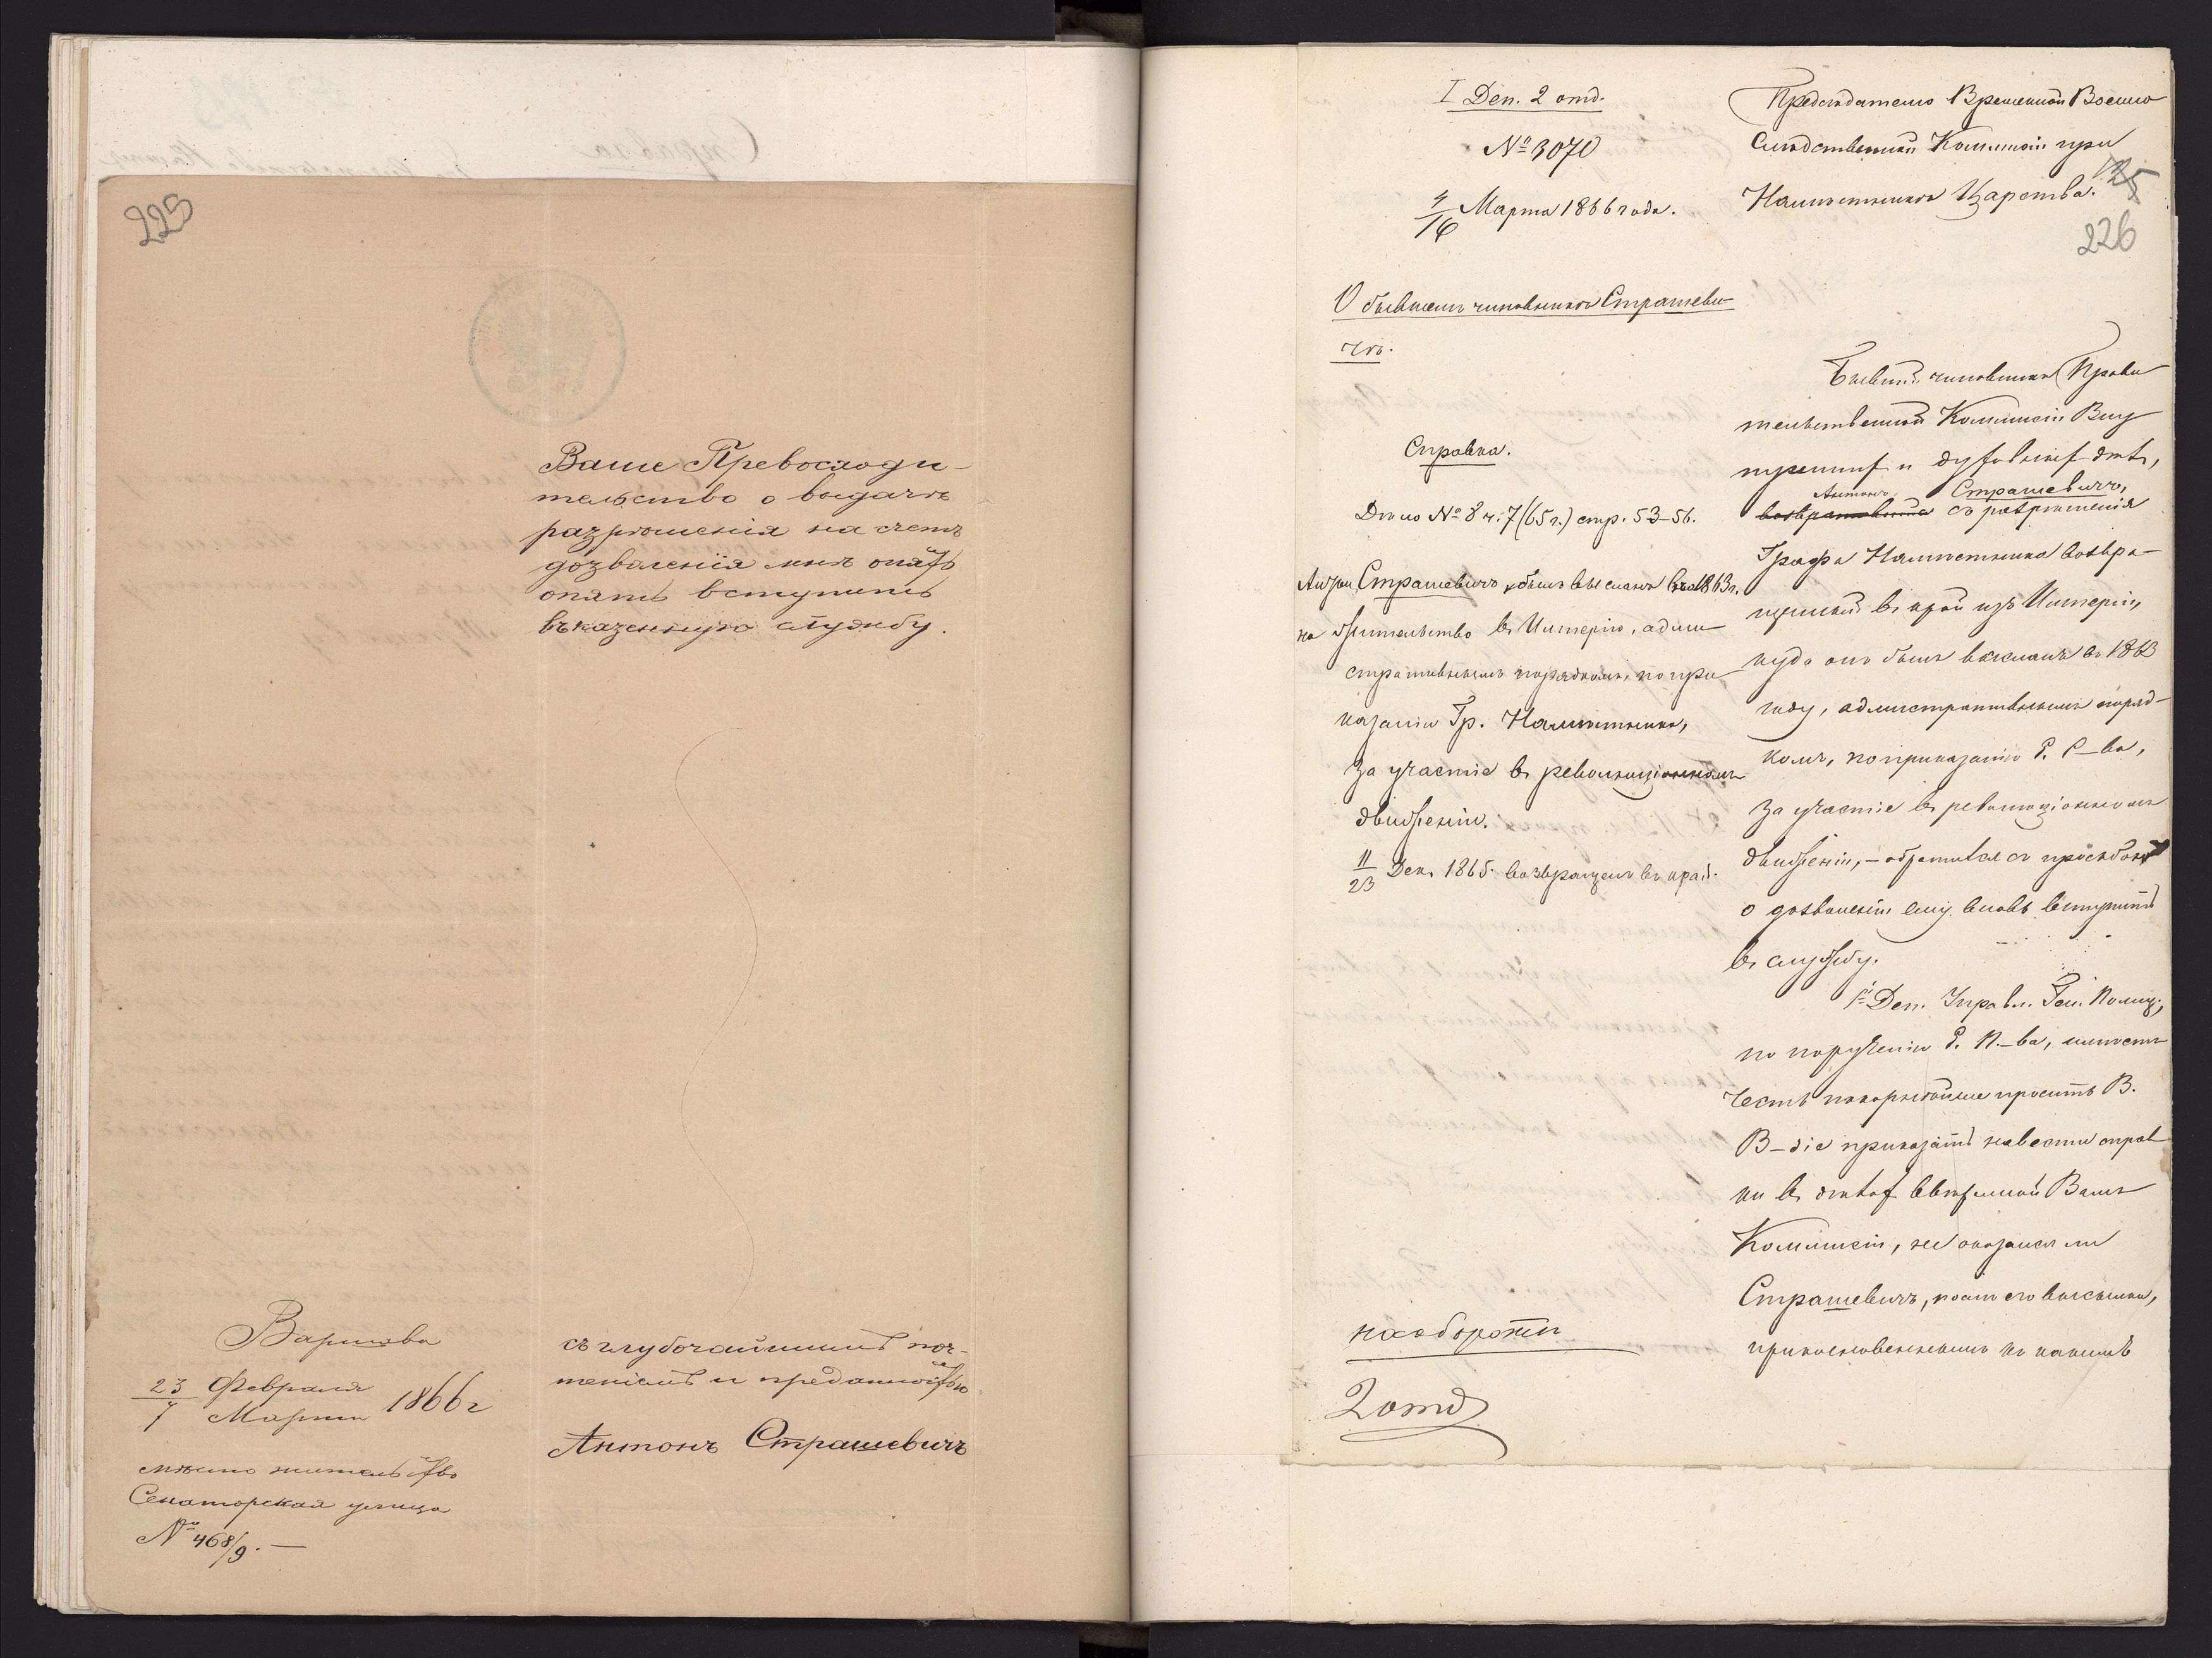 225
Ваше Превосходи-
тельство о выдачѣ
разрѣшенія на счетъ
дозволенія мнѣ опять
опять вступить
въ казенную службу.
Варшава
23 Февраля
7 Марта 1866 г
мѣсто жительство
Сенаторская улица
№ 468/9. —
съ глубочайшимъ поч-
теніемъ и преданностью
Антонъ Страшевичъ
I Деп. 2 отд.
№ 3070
4/16 Марта 1866 года.
О бывшемъ чиновникѣ Страшеви-
чѣ.
Справка.
Дѣло № 8 ч. 7 (65 г.) стр. 53–56.
Антон Страшевичъ былъ высланъ въ 1863 г.
на жительство въ Имперію, адми-
стративнымъ порядкомъ, по при
казанію Гр. Намѣстника,
за участіе въ революціонномъ
движеніи.
11/23 Дек. 1865. возвращенъ въ край.
на оборотѣ
2 отд
Предсѣдателю Временной Военно
Слѣдственной Коммисіи при
Намѣстникѣ Царства.
226
Бывшій чиновникъ Прави
тельственной Коммисіи Вну
треннихъ и Духовныхъ дѣлъ,
Антонъ Страшевичъ,
съ разрѣшенія
Графа Намѣстника возвра-
щенный въ край изъ Имперіи,
куда онъ былъ высланъ въ 1863
году, админстративнымъ поряд-
комъ, по приказанію Е. С–ва,
за участіе въ революціонномъ
движеніи, – обратился съ просьбою
о дозволеніи ему вновь вступить
въ службу.
1й Деп. Управл. Ген. Полиц.,
по порученію Е. П.–ва, имѣетъ
честь покорнѣйше просить В.
В–діе приказать навести справ
ки въ дѣлахъ ввѣренной Вамъ
Коммисіи, не оказался ли
Страшевичъ, послѣ его высылки,
прикосновеннымъ къ какимъ